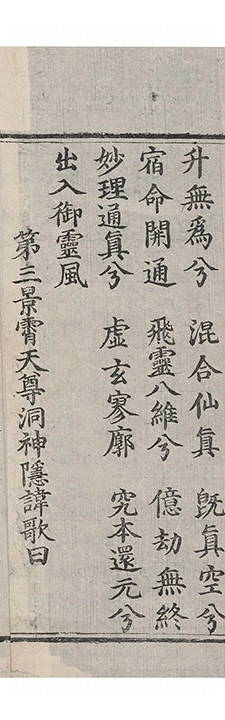 升無為兮　混合仙真　既真空兮
宿命開通　飛靈八維兮　億劫無終
妙理通真兮　虛玄寥廓　究本還元兮
出入御靈風
第三景霄天尊洞神隱諱歌曰